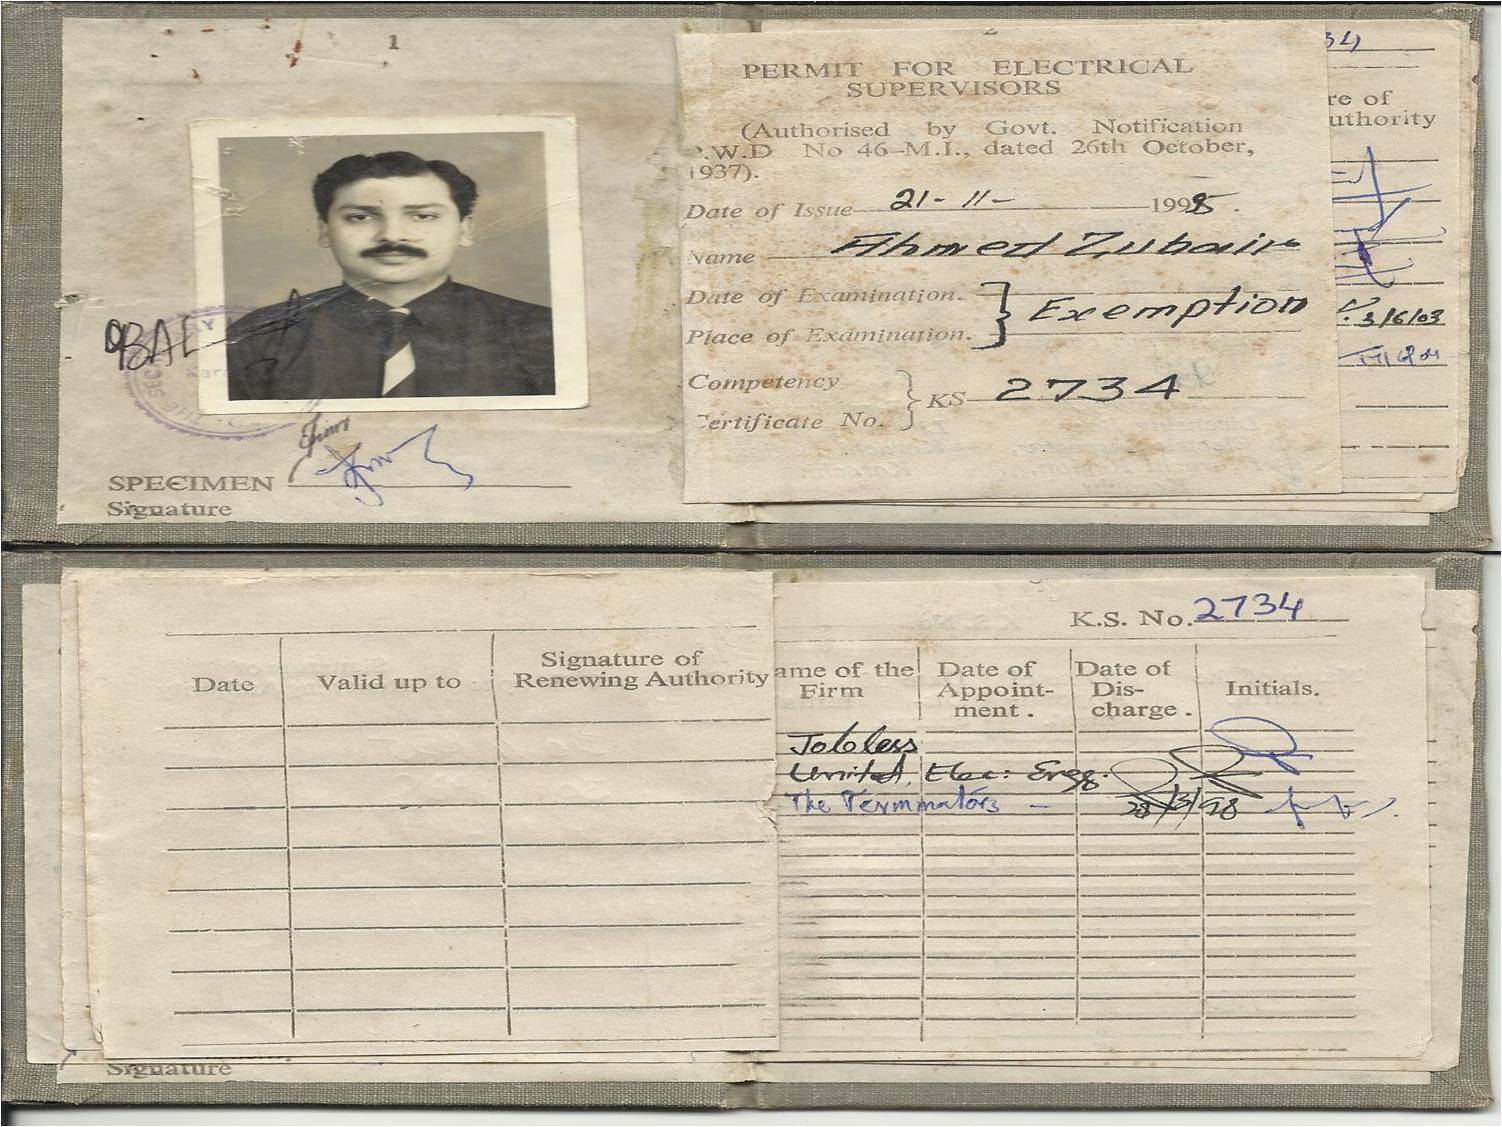 1
PERMIT FOR ELECTRICAL
SUPERVISORS
(Authorised by Govt. Notification
P.W.D No 46-M.I., dated 26th October,
1937).
Date of Issue 21-11- 1995.
Name Ahmed Zubair
Date of Examination.
Place of Examination.
} Exemption
Competency
Certificate No.
} KS 2734
34
re of
uthority
3/6/03
SPECIMEN
Signature
K.S. No. 2734
Date
Valid up to
Signature of
Renewing Authority
ame of the
Firm
Date of
Appoint-
ment.
Date of
Dis-
charge.
Initials.
Jobless
United, Elec: Engg.
The Terminators - 28/3/98
Signature